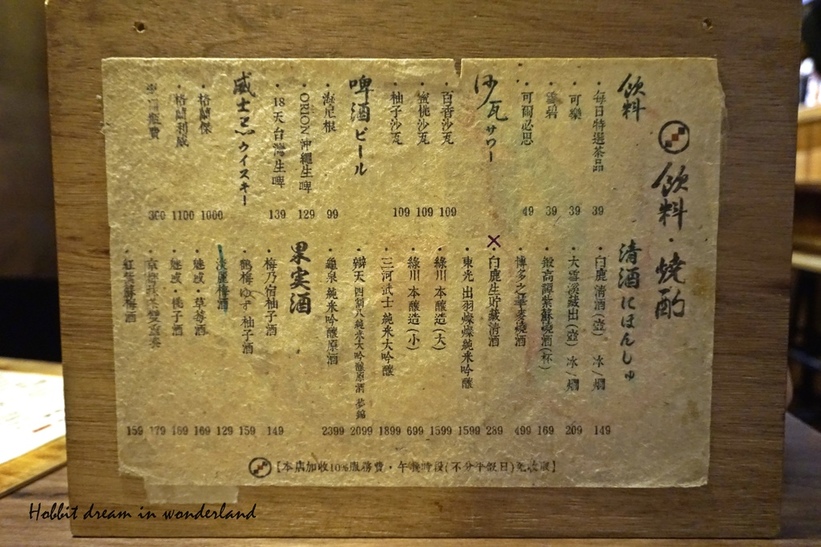 飲料・燒酌
飲料
・每日特選茶品 39
・可樂 39
・雪碧 39
・可爾必思 49
沙瓦サワー
・百香沙瓦 109
・蜜桃沙瓦 109
・柚子沙瓦 109
啤酒ビール
・海尼根 99
・ORION沖繩生啤 129
・18天台灣生啤 139
威士忌ウイスキー
・格蘭傑 1000
・格蘭利威 1100
300
清酒にほんしゅ
・白鹿清酒(壺) 冰/燗 149
・大雪溪藏出(壺) 冰/燗 209
・鍛高譚紫蘇燒酒(杯) 169
・博多之華麥燒酒 499
・白鹿生貯藏清酒 289
・東光 出羽燦燦純米吟釀 1599
・綠川 本釀造(大) 1599
・綠川 本釀造(小) 699
・三河武士 純米大吟釀 1899
・辯天 四割八純米大吟釀原酒 2099
・龜泉 純米吟釀原酒 2399
果実酒
・梅乃宿柚子酒 149
・鶴梅ゆず 柚子酒 159
梅酒 129
・魅惑・草莓酒 169
・魅惑・桃子酒 169
179
・紅 梅酒 159
【本店加收10%服務費・午餐時段(不分平假日)免收服】
Hobbit dream in wonderland